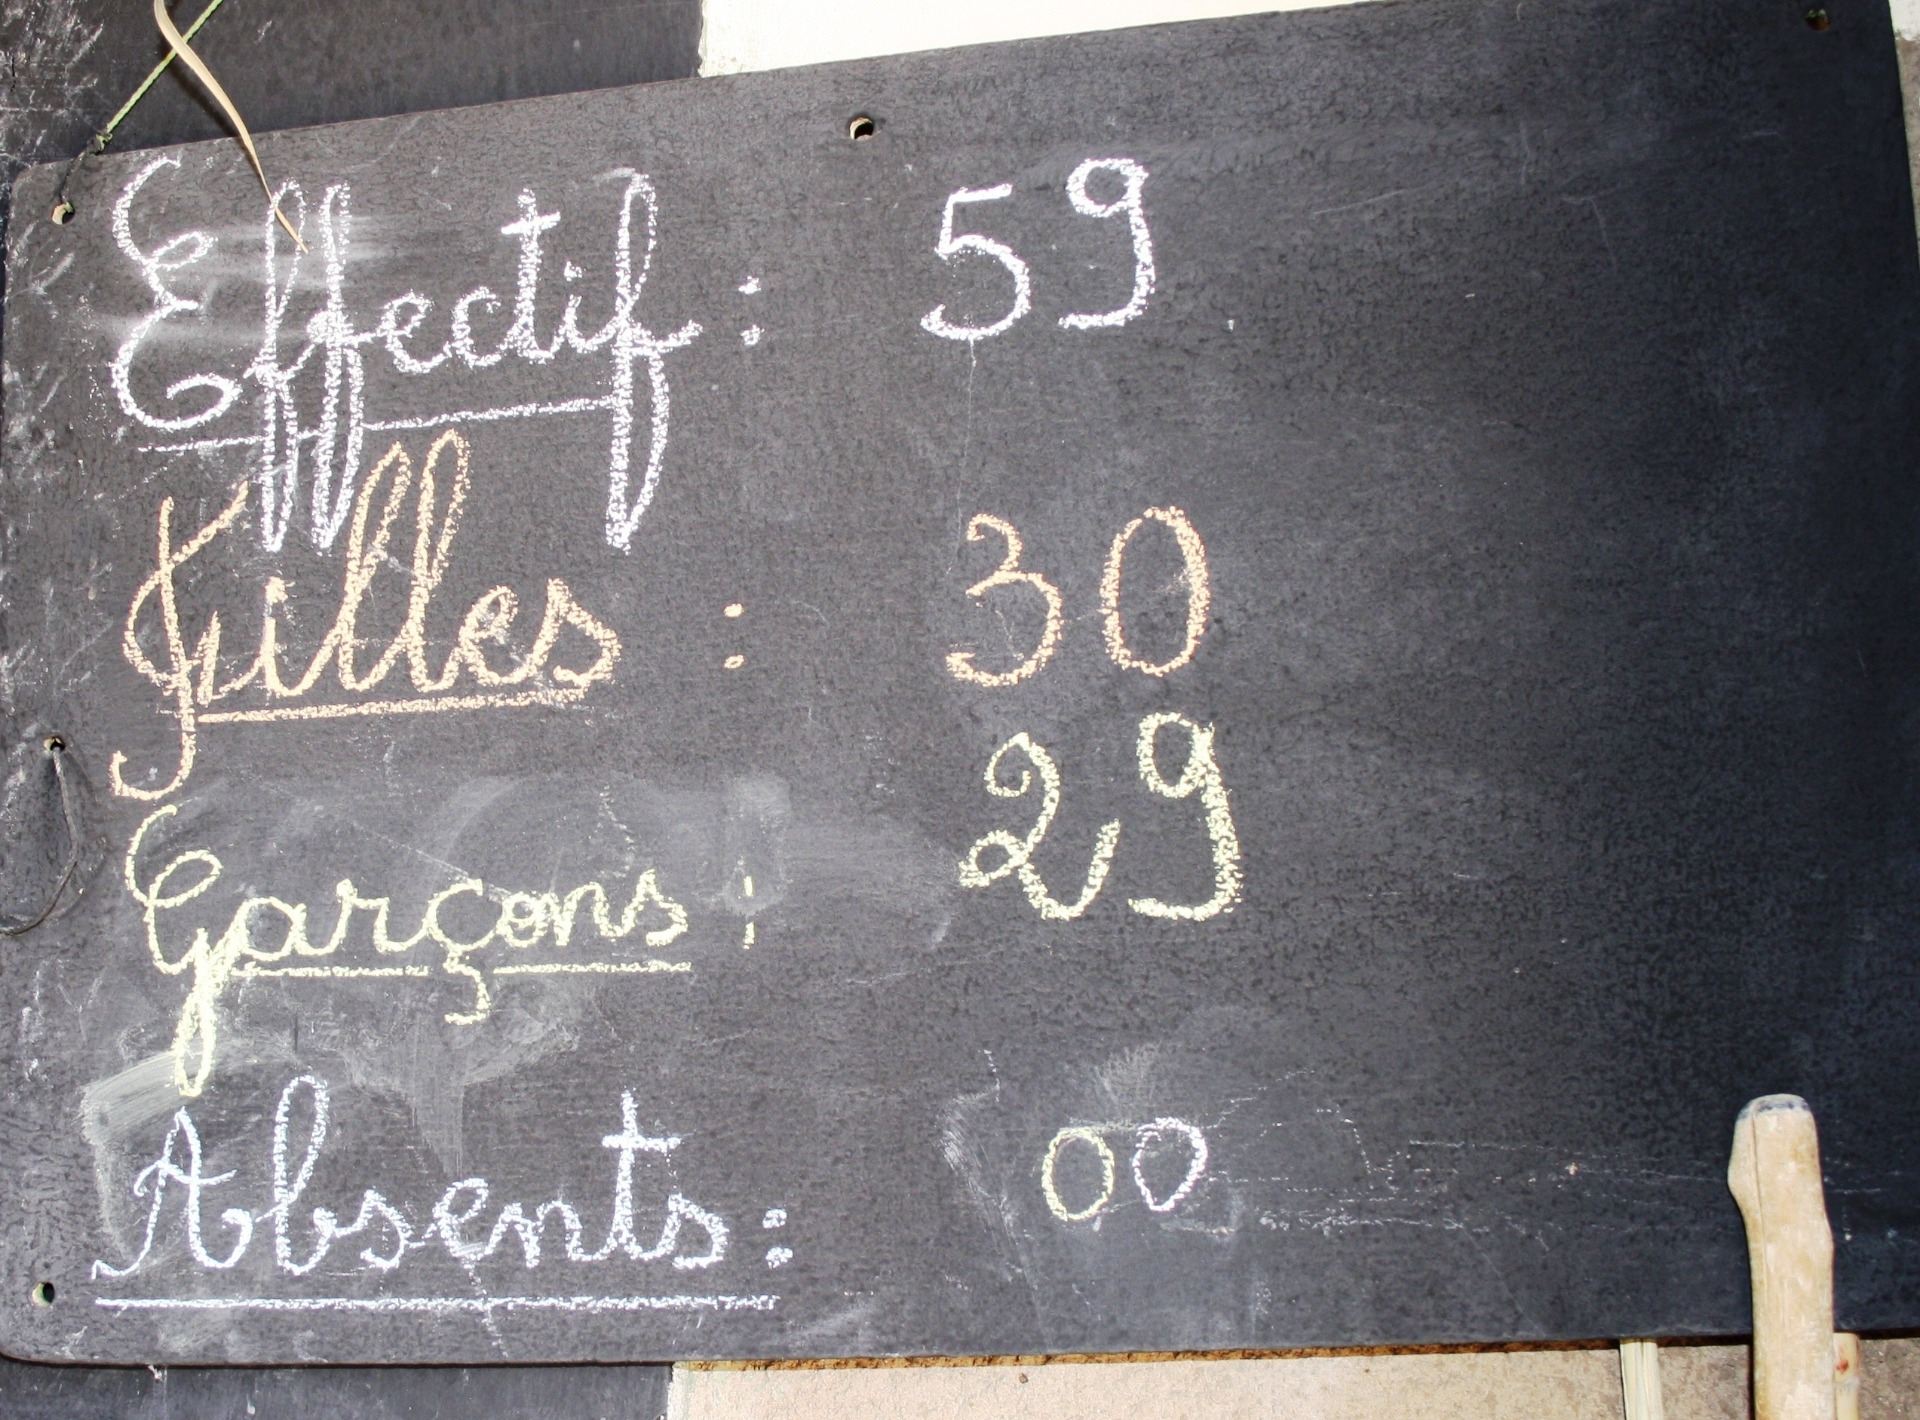 Effectif : 59
Filles : 30
Garçons : 29
Absents : 00